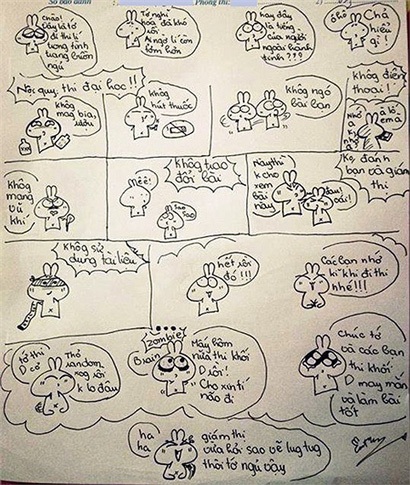 Số báo danh
Phòng thi:
chào!
Đây là tớ
đi thi lí
trong tình
trạng buồn
ngủ
Tớ nghĩ
hoá đã khó
rồi
Ai ngờ lí còn
hay đây
là tiếng
của người
ngoài hành
tinh???
ó hó
Chả
hiểu
gì!
Nội quy thi đại học!!
không
mag bia,
rượu
không
hút thuốc
không ngó
bài bạn
không điện
thoại!
à lô
em à
không
mang
vũ
khí
không trao
đổi bài
mêê!
sao sao
này thì
k cho
xem
bài
này
K đánh
bạn và giám
thị
đau!
oái!
không sử
dụng tài liệu
hết rồi
đó!!!
Các bạn nhớ
kĩ khi đi thi
nhé!!!
tớ thi
D cơ
Thỏ
random
mog rồi
k lo đâu
zombie
Brain
Mấy hôm
nữa thi khối
D rồi!
Cho xin tí
não đi
Chúc tớ
và các bạn
thi khối
D may mắn
và làm bài
tốt
ha
ha
giám thị
vừa hỏi sao vẽ lug tug
thôi tớ ngủ vậy